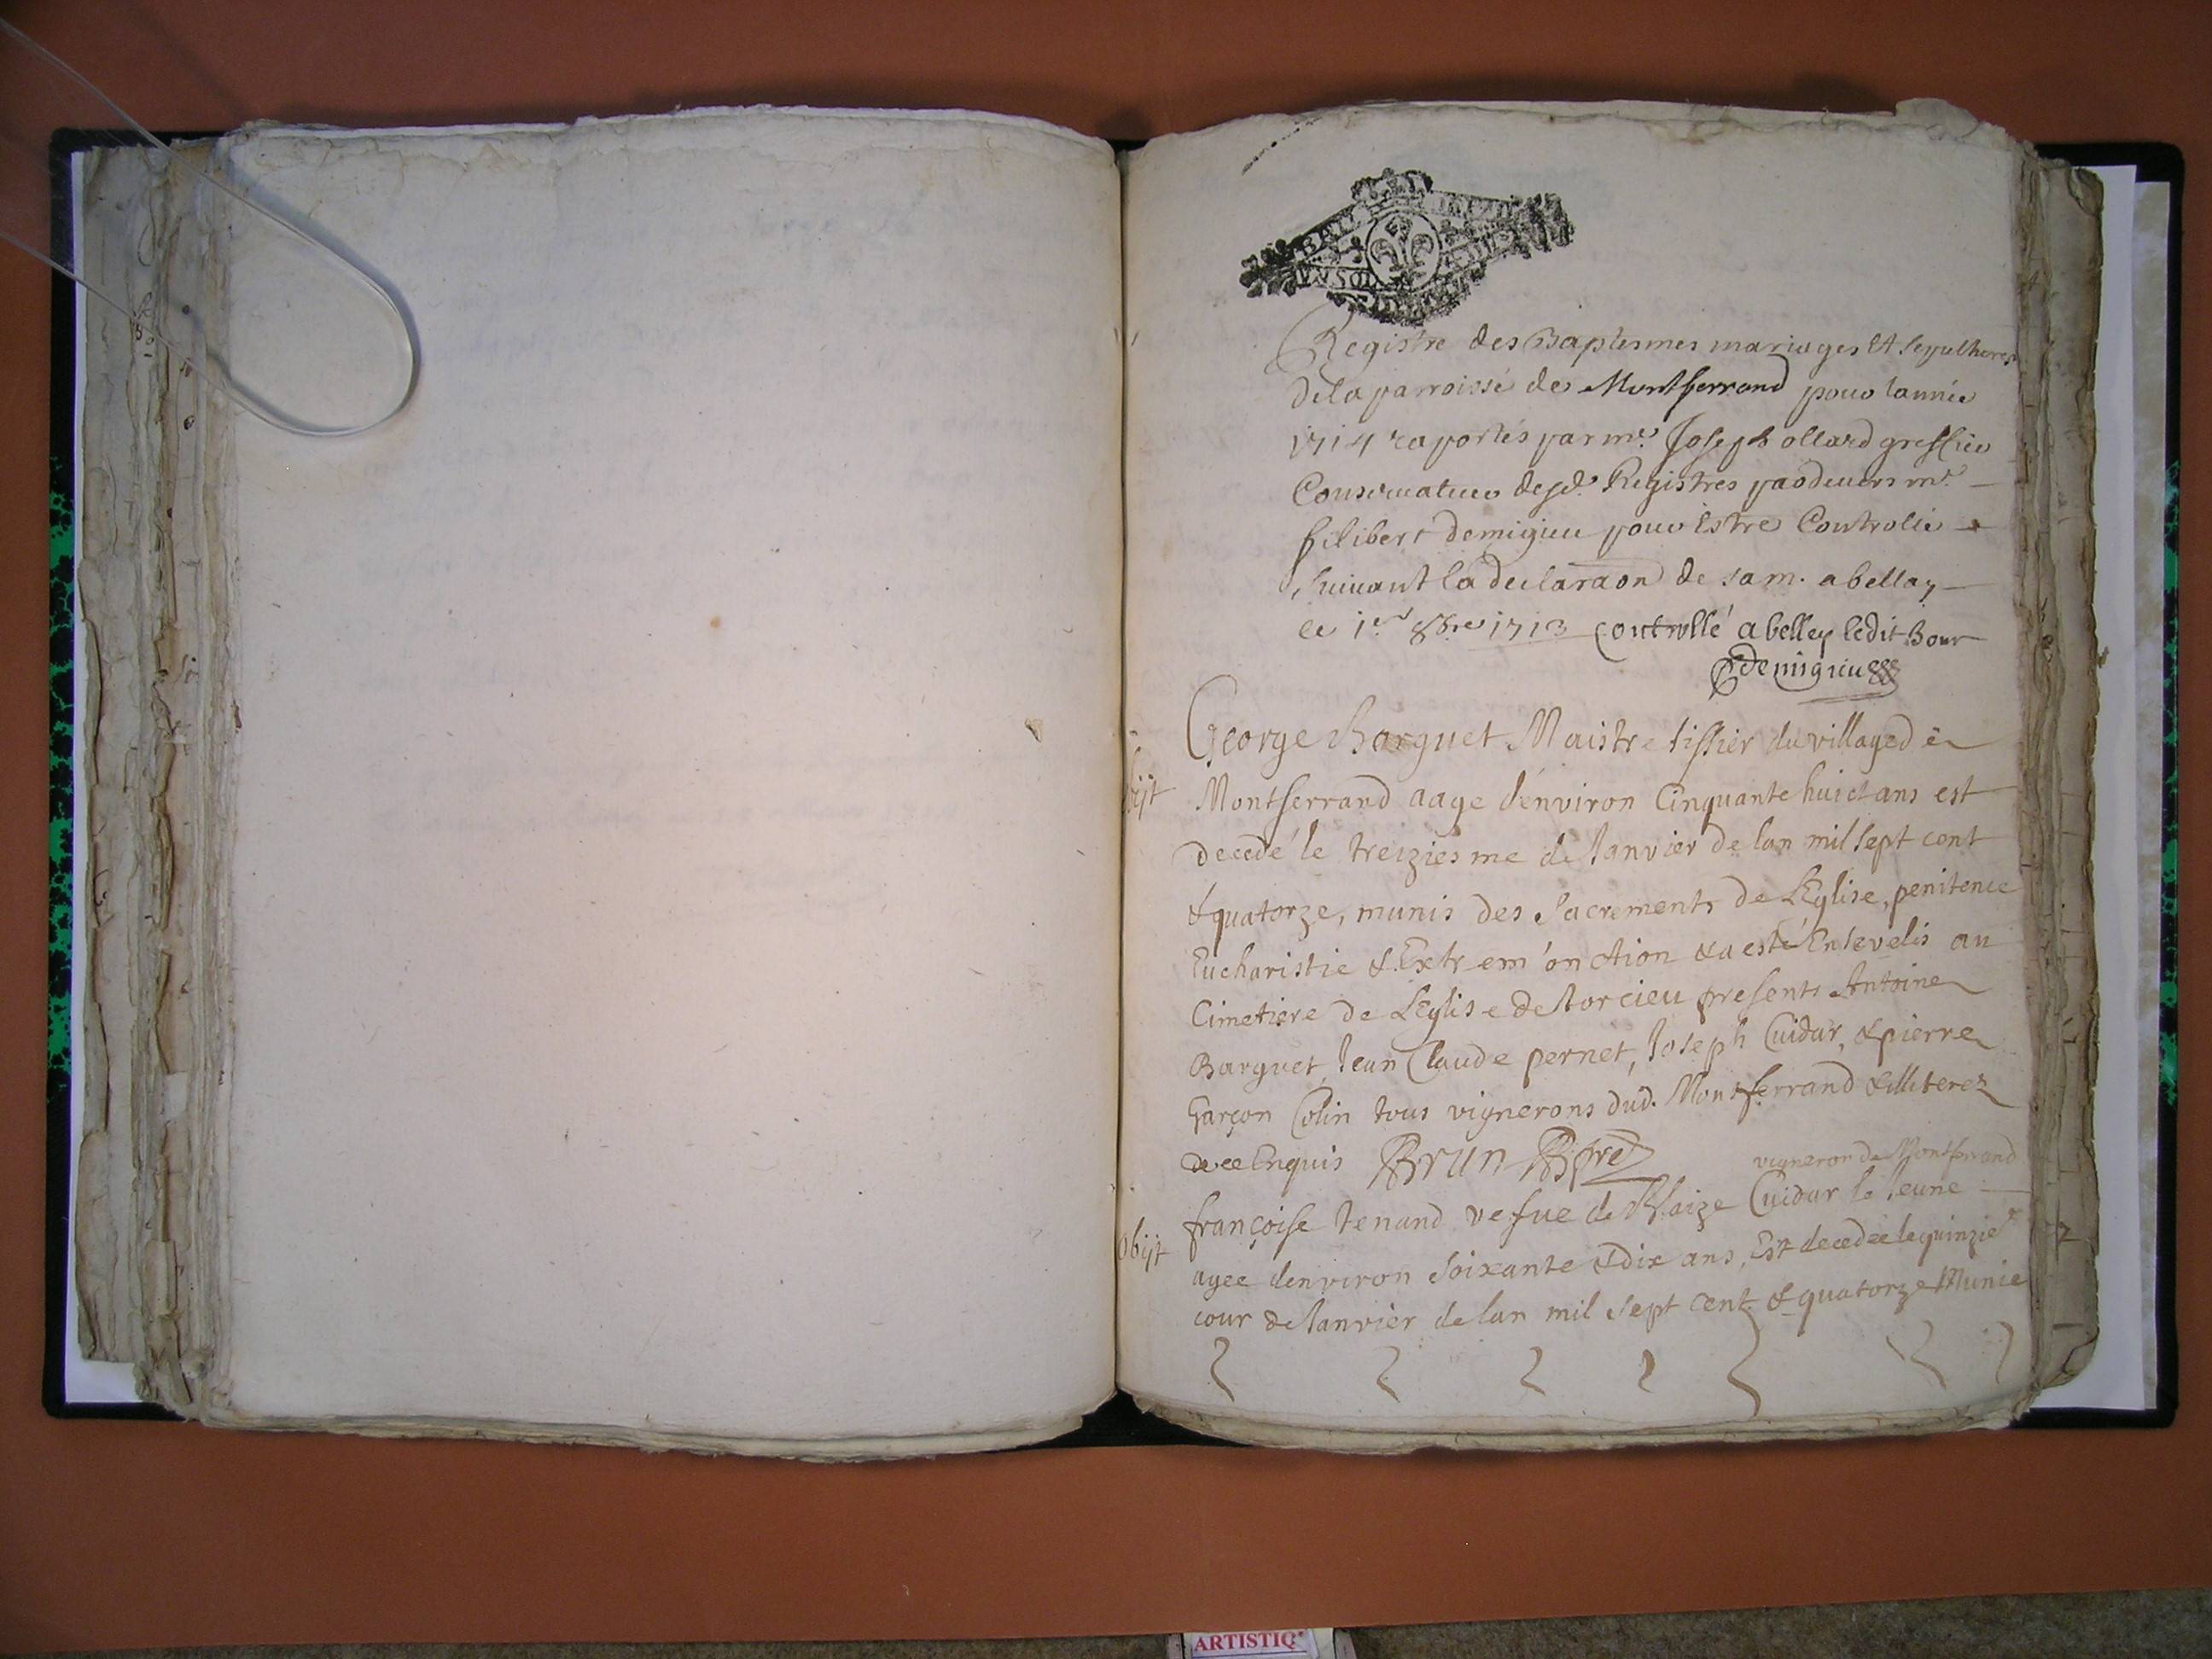 Registre des Baptesmes mariages Et sepultures
de la parroisse de Montferrand pour lannée
1714 raportés par mr. Joseph ollard greffier
Conservateur desd. Registres pardevers mr.
filibert demigieu pour Estre Controllé
suivant la declaraon de sa m. a bellay
le 1er 8bre 1713 controllé a belley ledit Jour
demigieu
George Barguet Maistre tissier du village de
obijt
Montferrand aage d'environ Cinquante huict ans est
decedé le treiziesme de Janvier de lan mil sept cent
& quatorze, munis des Sacrements de L'Eglise, penitence
Eucharistie & Extrem'onction & a esté Ensevelis au
Cimetiere de L'Eglise de Torcieu presents Antoine
Barguet, Jean Claude pernet, Joseph Cuidar, & pierre
Garçon Colin tous vignerons dud. Montferrand & illiterez
de ce Enquis Brun ptre
vigneron de Montferrand
françoise tenand vefue de Blaize Cuidar le Jeune
obijt
agee denviron Soixante & dix ans, Est decedee le quinzie
jour de Janvier de lan mil sept cent & quatorze Munie
ARTISTIQ